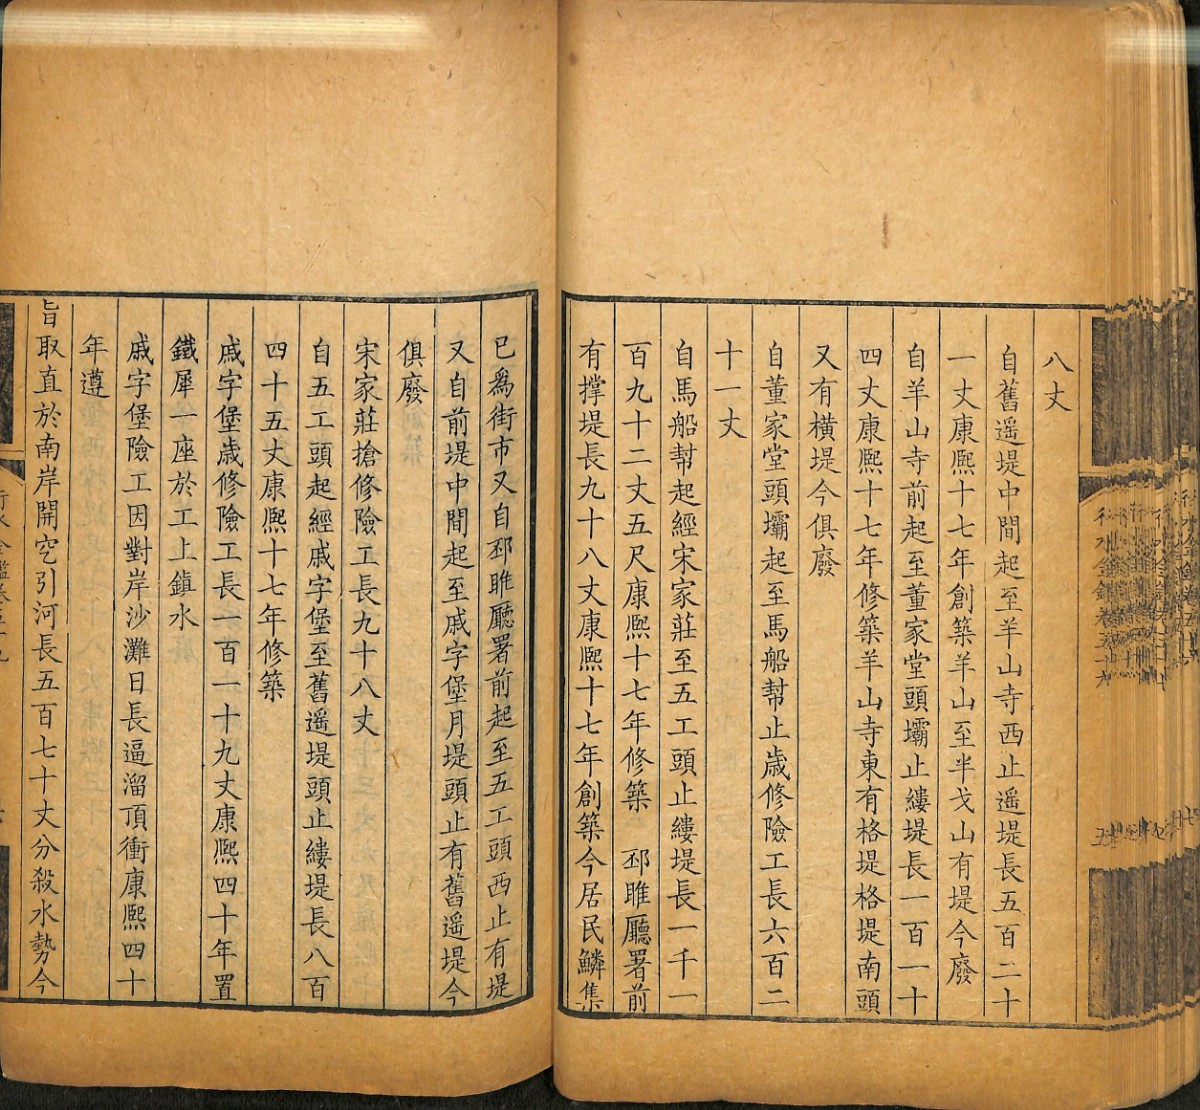 八丈
自舊遥堤中間起至羊山寺西止遥堤長五百二十
一丈康熙十七年創築羊山至半戈山有堤今廢
自羊山寺前起至董家堂頭壩止縷堤長一百一十
四丈康熙十七年修築羊山寺東有格堤格堤南頭
又有橫堤今俱廢
自董家堂頭壩起至馬船幫止歲修險工長六百二
十一丈
自馬船幫起經宋家莊至五工頭止縷堤長一千一
百九十二丈五尺康熙十七年修築 邳睢廳署前
有撑堤長九十八丈康熙十七年創築今居民鱗集
已爲街市又自邳睢廳署前起至五工頭西止有堤
又自前堤中間起至戚字堡月堤頭止有舊遥堤今
俱廢
宋家莊搶修險工長九十八丈
自五工頭起經戚字堡至舊遥堤頭止縷堤長八百
四十五丈康熙十七年修築
戚字堡歲修險工長一百一十九丈康熙四十年置
鐵犀一座於工上鎮水
戚字堡險工因對岸沙灘日長逼溜頂衝康熙四十
年遵
旨取直於南岸開空引河長五百七十丈分殺水勢今